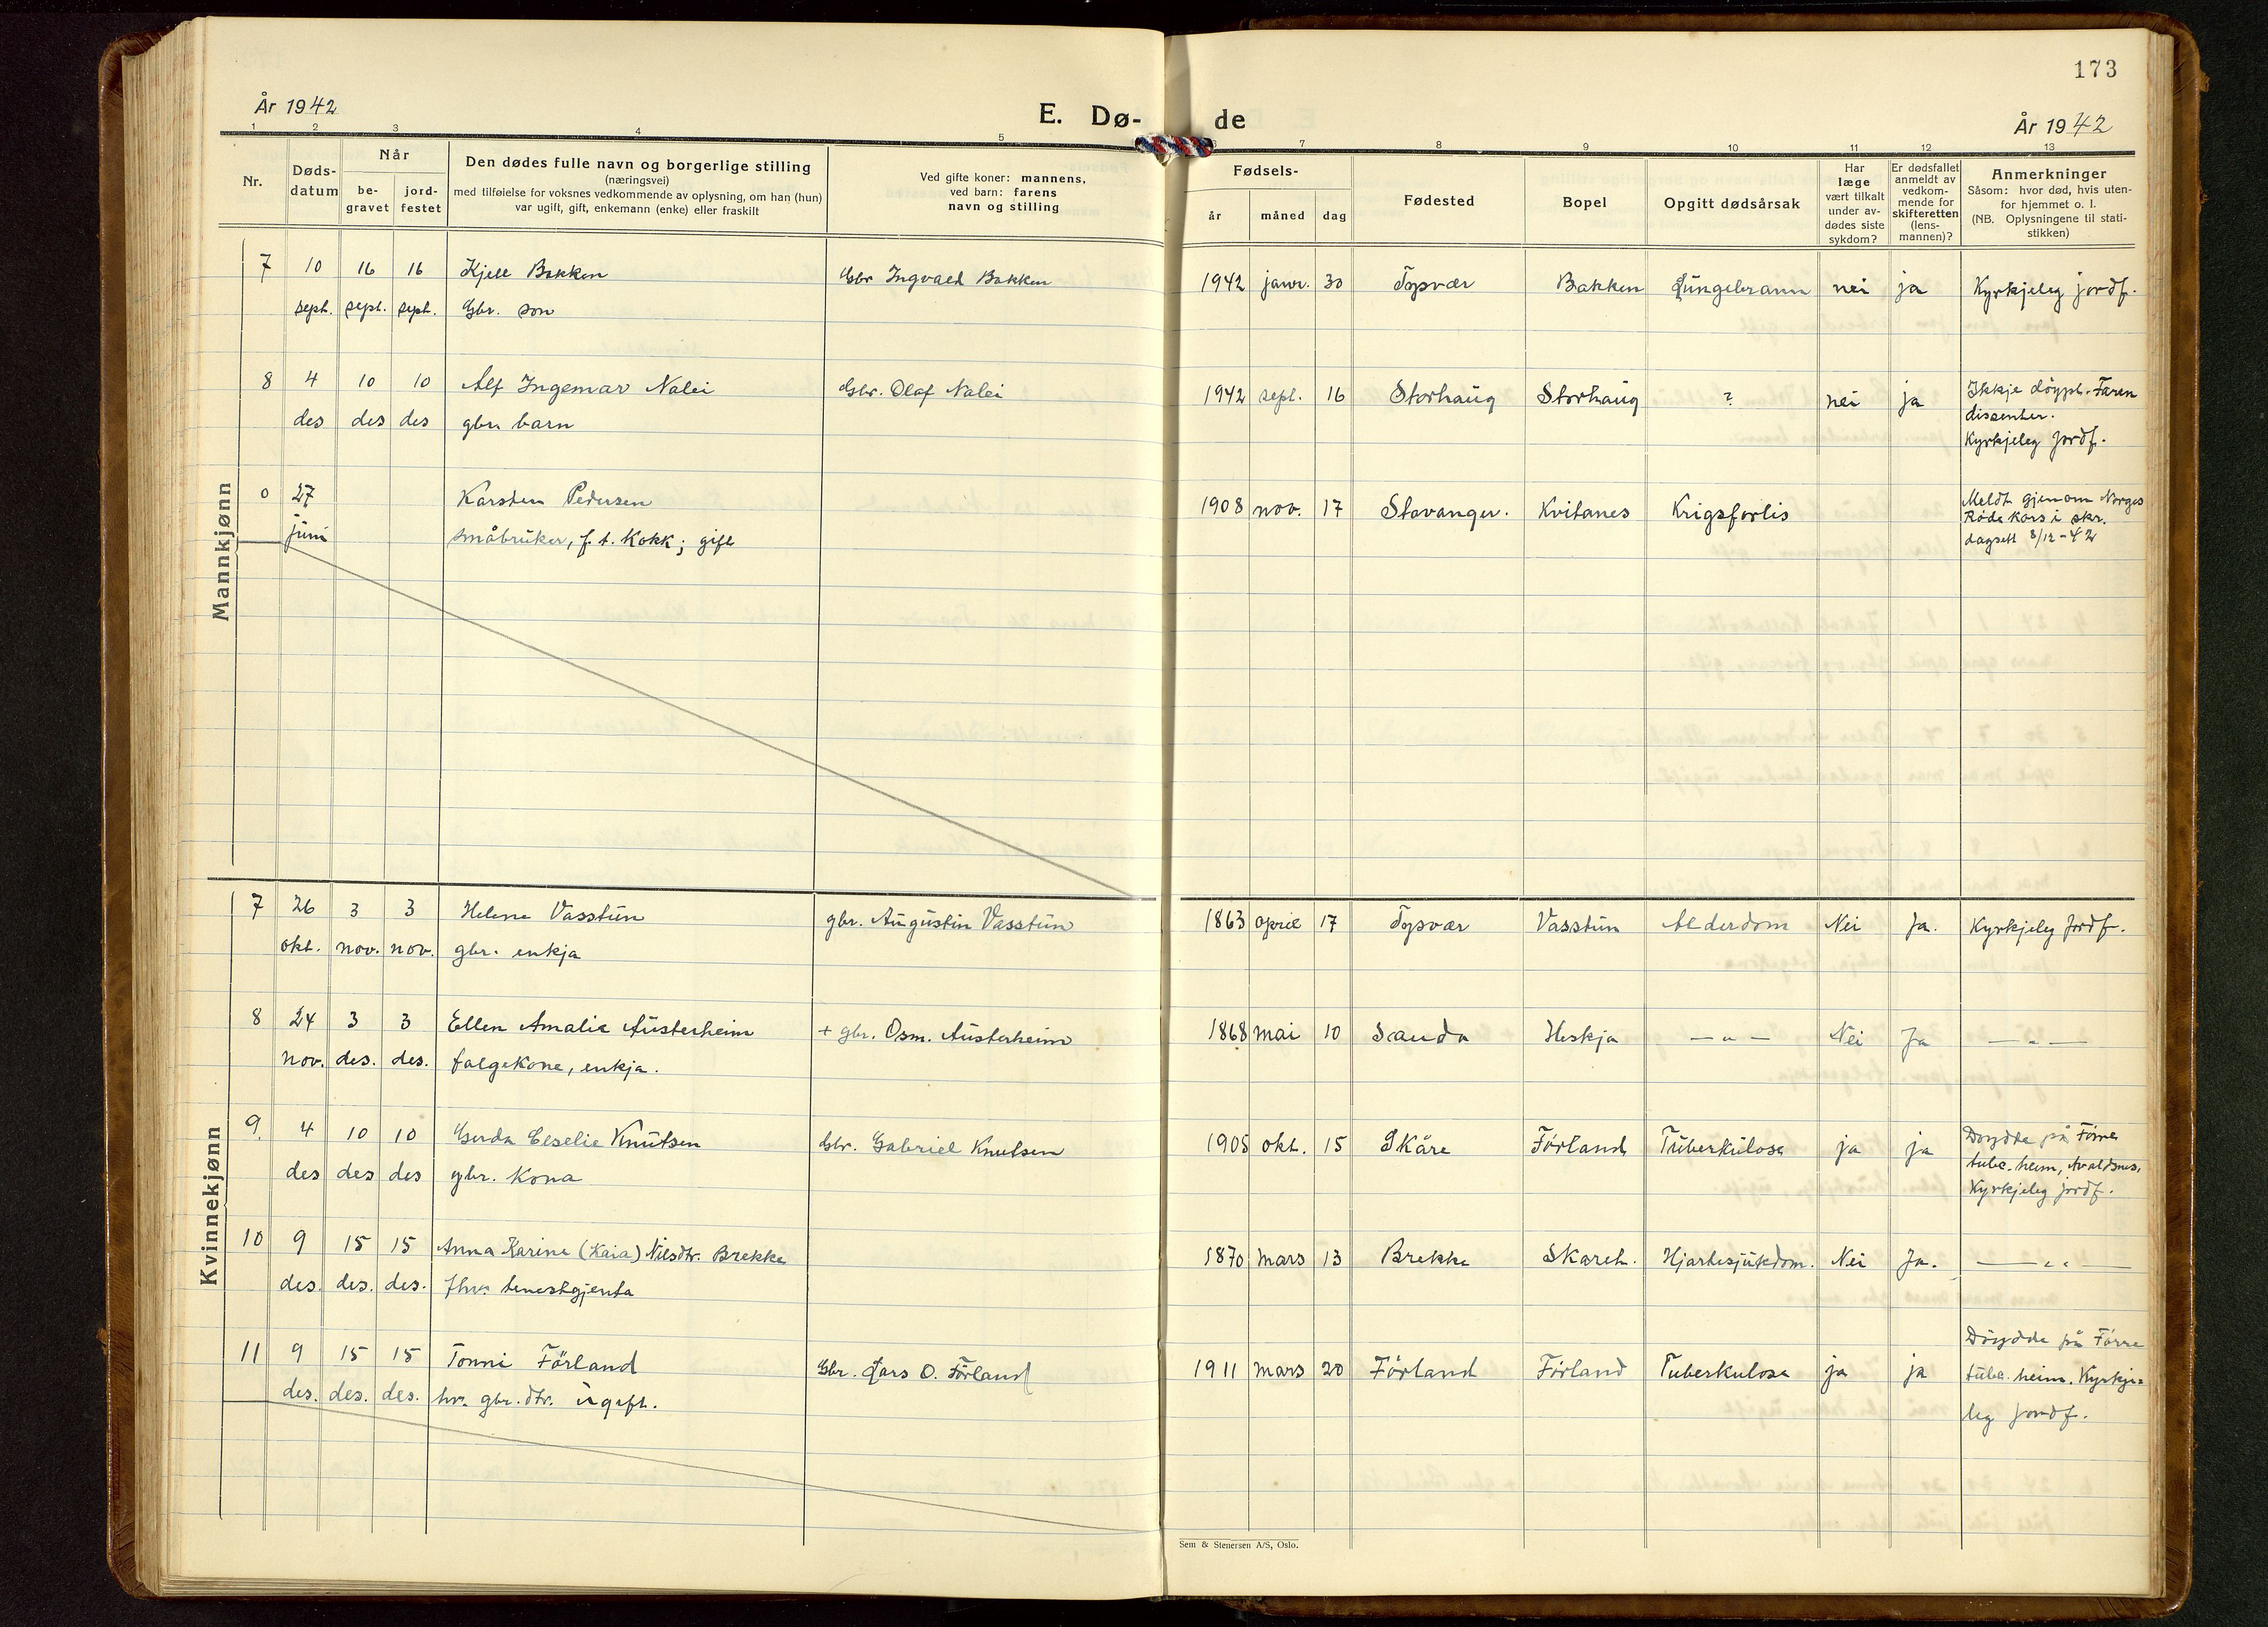 173
År 1942
E. Dø-
de
År 1942
1 2 3 4 5 6 7 8 9 10 11 12 13
Nr.
Døds-
datum
Når
be-
gravet
jord-
festet
Den dødes fulle navn og borgerlige stilling
(næringsvei)
med tilføielse for voksnes vedkommende av oplysning, om han (hun)
var ugift, gift, enkemann (enke) eller fraskilt
Ved gifte koner: mannens,
ved barn: farens
navn og stilling
Fødsels-
år
måned
dag
Fødested
Bopel
Opgitt dødsårsak
Har
læge
vært tilkalt
under av-
dødes siste
sykdom?
Er dødsfallet
anmeldt av
vedkom-
mende for
skifteretten
(lens-
mannen)?
Anmerkninger
Såsom: hvor død, hvis uten-
for hjemmet o. l.
(NB. Oplysningene til stati-
stikken)
Mannkjønn
7 10 16 16 Kjell Bakken Gbr Ingvald Bakken 1942 janr. 30 Tysvær Bakken Lungebrann nei ja Kyrkjeleg jordf.
sept. sept. sept. Gbr. son
8 4 10 10 Alf Ingemar Nalei Gbr. Olaf Nalei 1942 sept. 16 Storhaug Storhaug ? nei ja Ikkje döypt. Faren
des des des gbr. barn dissenter.
Kyrkjeleg Jordf.
0 27 Karsten Pedersen 1908 nov. 17 Stavanger. Kvitanes Krigsforlis Meldt gjenom Norges
juni småbruker, f. t. Kokk; gift Røde Kors i skr.
dagsett 8/12-42
Kvinnekjønn
7 26 3 3 Helene Vasstun gbr. Augustin Vasstun 1863 april 17 Tysvær Vasstun Alderdom Nei Ja. Kyrkjeleg Jordf.
okt. nov. nov. gbr. enkja
8 24 3 3 Ellen Amalie Austerheim + gbr. Osm. Austerheim 1868 mai 10 Sauda Heskja — " — Nei Ja — " —
nov. des. des. folgekone, enkja.
9. 4 10 10 Gerda Elselie Knutsen Gbr. Gabriel Knutsen 1905 okt. 15 Skåre Förland Tuberkulose ja ja Döydde på Förre
des des des gbr. Kona tube. heim, Avaldsnes.
Kyrkjeleg jordf.
10 9 15 15 Anna Karine (Kaia) Nilsdtr. Brekke 1870 mars 13 Brekke Skareh. Hjartesjukdom. Nei Ja. — " —
des. des. des. fhv. tenestgjenta
11 9 15 15 Tonni Förland Gbr. Lars O. Förland 1911 mars 20 Förland Förland Tuberkulose ja ja Döydde på Förre
des. des. des. hv. gbr. dtr. ugift. tube. heim. Kyrkje=
leg Jordf.
Sem & Stenersen A/S, Oslo.